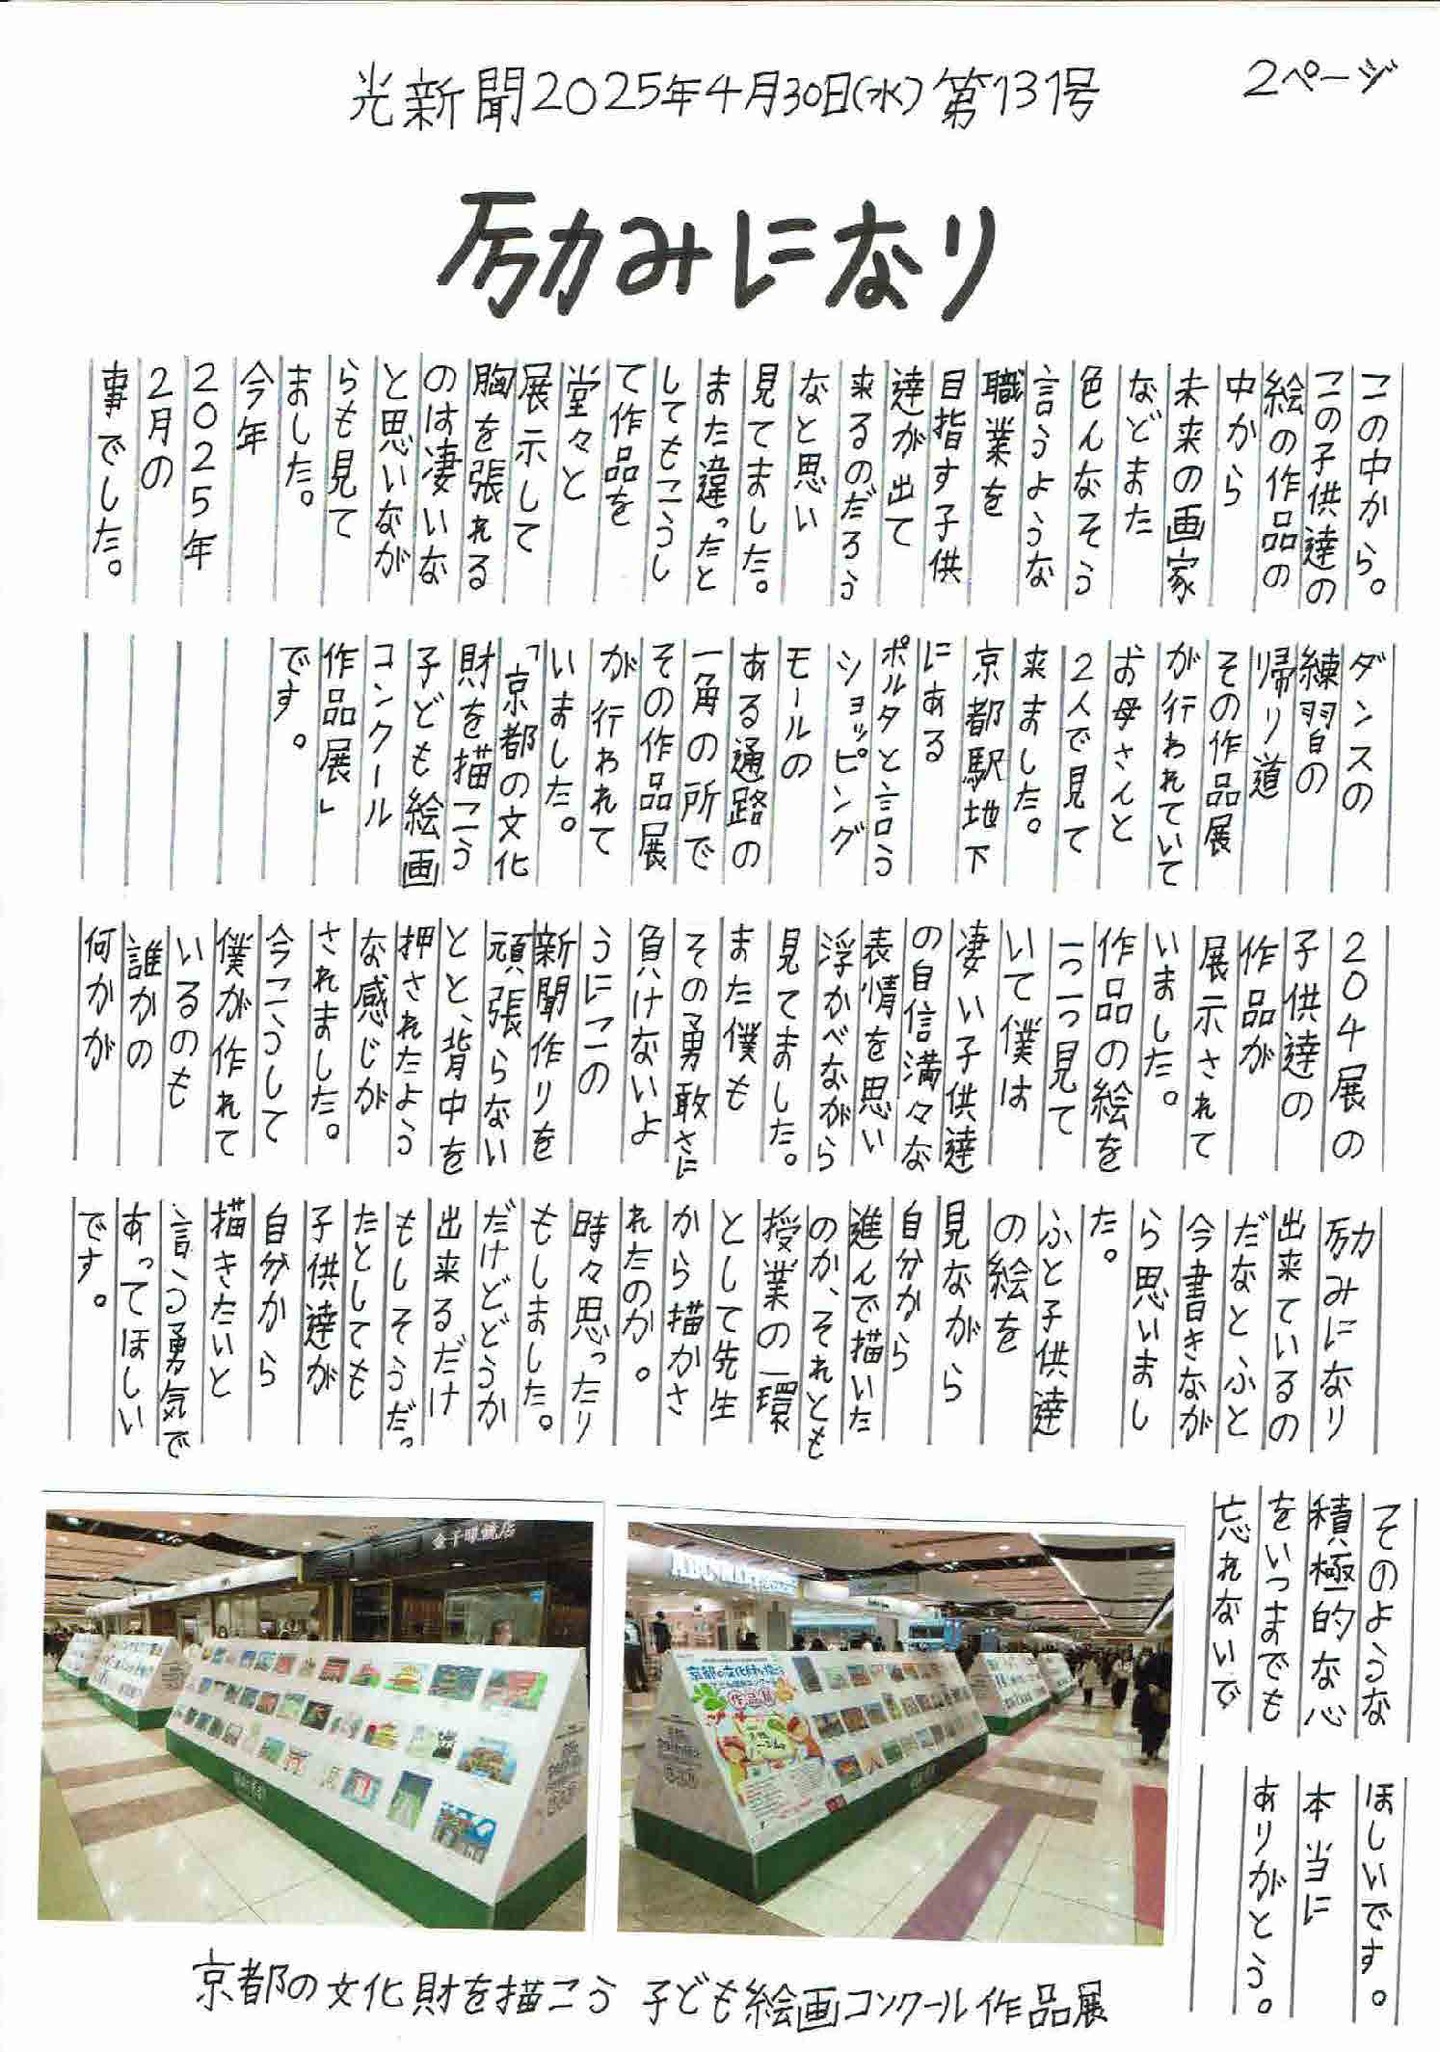 光新聞2025年4月30日(水)第131号
2ページ
励みになり
この中から。
この子供達の
絵の作品の
中から
未来の画家
などまた
色んなそう
言うような
職業を
目指す子供
達が出て
来るのだろう
なと思い
見てました。
また違ったと
してもこうし
て作品を
堂々と
展示して
胸を張れる
のは凄いな
と思いなが
らも見て
ました。
今年
2025年
2月の
事でした。
ダンスの
練習の
帰り道
その作品展
が行われていて
お母さんと
2人で見て
来ました。
京都駅地下
にある
ポルタと言う
ショッピング
モールの
ある通路の
一角の所で
その作品展
が行われて
いました。
「京都の文化
財を描こう
子ども絵画
コンクール
作品展」
です。
204展の
子供達の
作品が
展示されて
いました。
作品の絵を
一つ一つ見て
いて僕は
凄い子供達
の自信満々な
表情を思い
浮かべながら
見てました。
また僕も
その勇敢さに
負けないよ
うにこの
新聞作りを
頑張らない
とと、背中を
押されたよう
な感じが
されました。
今こうして
僕が作れて
いるのも
誰かの
何かが
励みになり
出来ているの
だなとふと
今書きなが
ら思いまし
た。
ふと子供達
の絵を
見ながら
自分から
進んで描いた
のか、それとも
授業の一環
として先生
から描かさ
れたのか。
時々思ったり
もしました。
だけどどうか
出来るだけ
もしそうだっ
たとしても
子供達が
自分から
描きたいと
言う勇気で
あってほしい
です。
そのような
積極的な心
をいつまでも
忘れないで
ほしいです。
本当に
ありがとう。
京都の文化財を描こう
作品展
京都の文化財を描こう 子ども絵画コンクール作品展